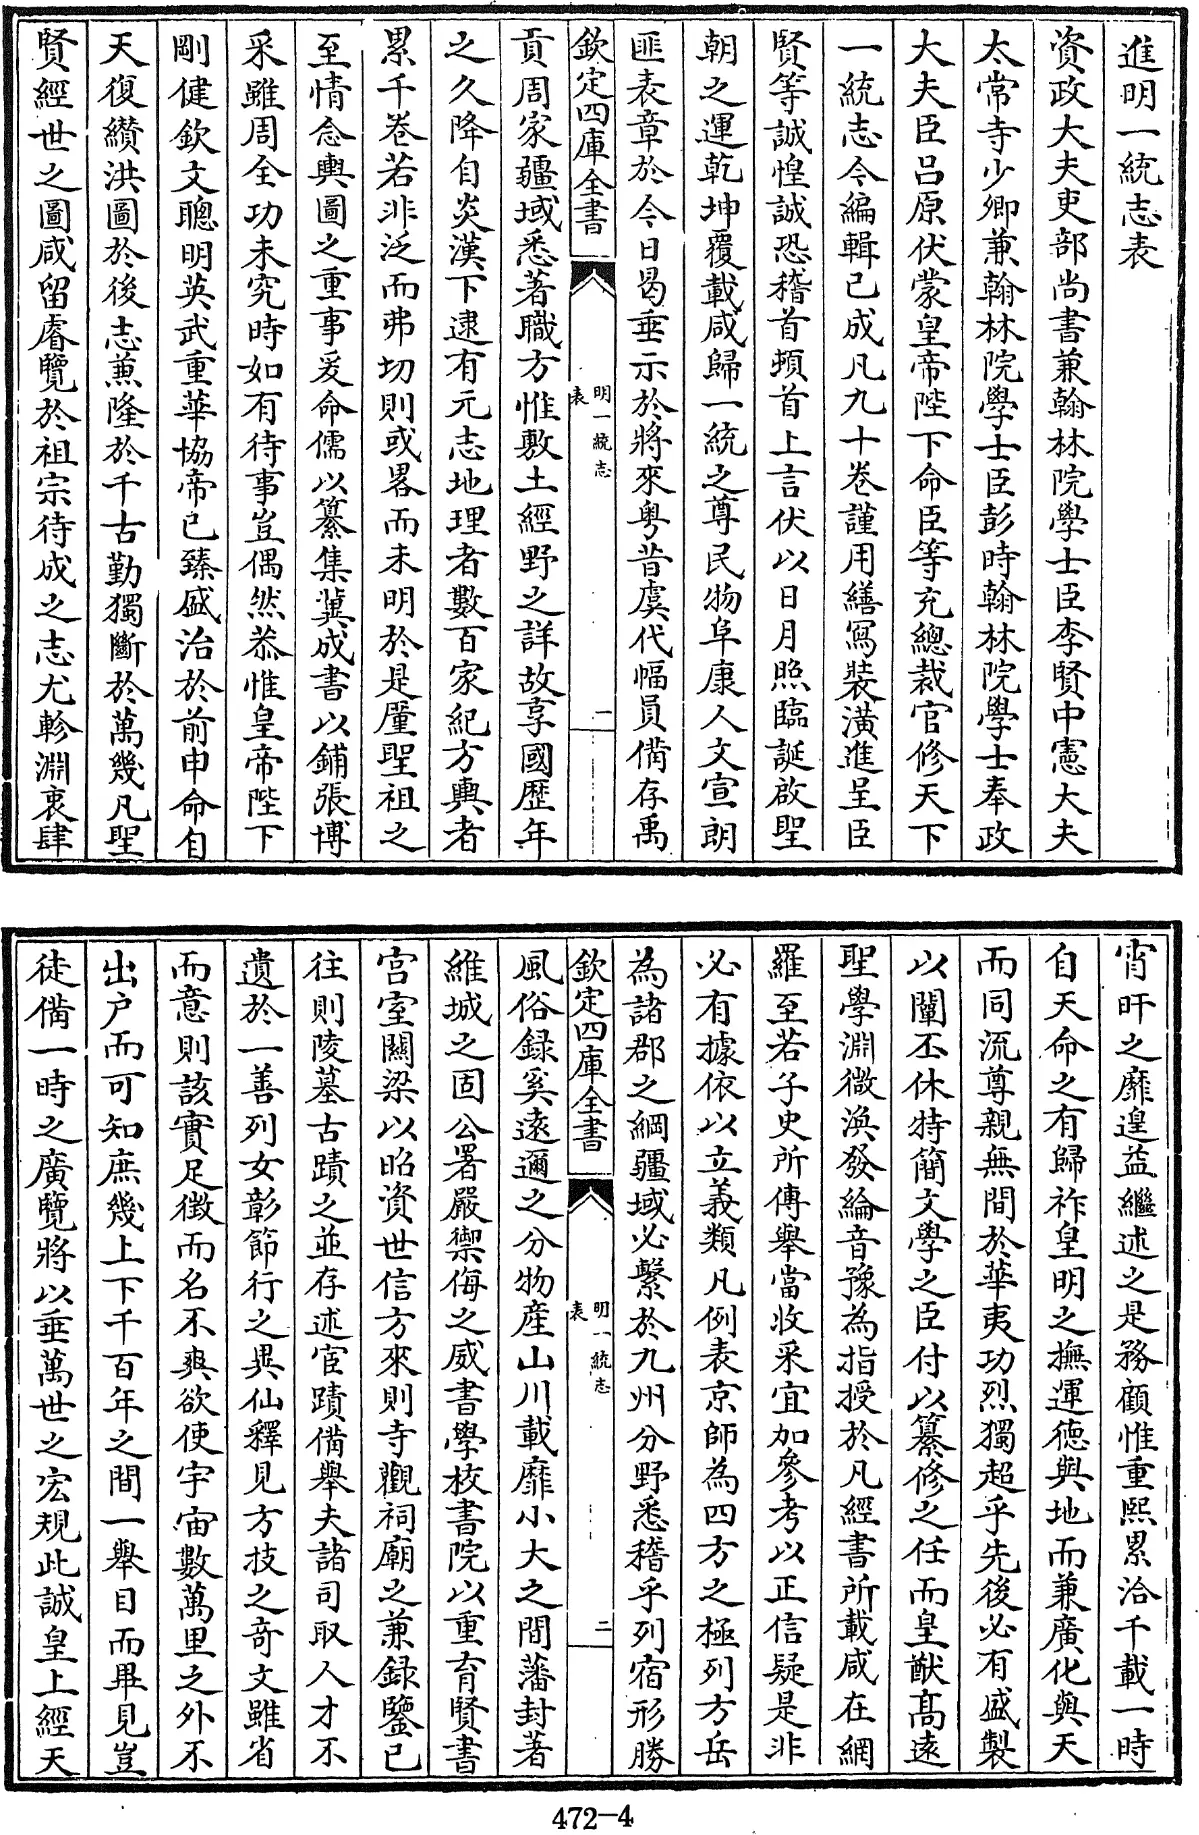 進明一統志表
資政大夫吏部尚書兼翰林院學士臣李賢中憲大夫
太常寺少卿兼翰林院學士臣彭時翰林院學士奉政
大夫臣呂原伏蒙皇帝陛下命臣等充總裁官修天下
一統志今編輯已成凡九十卷謹用繕寫裝潢進呈臣
賢等誠惶誠恐稽首頓首上言伏以日月照臨誕啟聖
朝之運乾坤覆載咸歸一統之尊民物阜康人文宣朗
匪表章於今日曷垂示於將來粤昔虞代幅員備存禹
欽定四庫全書
明一統志
表
一
貢周家疆域悉著職方惟敷土經野之詳故享國歷年
之久降自炎漢下逮有元志地理者數百家紀方輿者
累千卷若非泛而弗切則或畧而未明於是厪聖祖之
至情念輿圖之重事爰命儒以纂集冀成書以鋪張博
采雖周全功未究時如有待事豈偶然恭惟皇帝陛下
剛健欽文聰明英武重華協帝已臻盛治於前申命自
天復纘洪圖於後志兼隆於千古勤獨斷於萬幾凡聖
賢經世之圖咸留睿覽於祖宗待成之志尤軫淵衷肆
宵旰之靡遑益繼述之是務顧惟重熙累洽千載一時
自天命之有歸祚皇明之撫運德與地而兼廣化與天
而同流尊親無間於華夷功烈獨超乎先後必有盛製
以闡丕休特簡文學之臣付以纂修之任而皇猷高遠
聖學淵微渙發綸音豫為指授於凡經書所載咸在網
羅至若子史所傳舉當收采宜加參考以正信疑是非
必有據依以立義類凡例表京師為四方之極列方岳
為諸郡之綱疆域必繫於九州分野悉稽乎列宿形勝
欽定四庫全書
明一統志
表
二
風俗録奚遠邇之分物産山川載靡小大之間藩封著
維城之固公署嚴禦侮之威書學校書院以重育賢書
宫室關梁以昭資世信方來則寺觀祠廟之兼録鑒已
往則陵墓古蹟之並存述宦蹟備舉夫諸司取人才不
遺於一善列女彰節行之異仙釋見方技之奇文雖省
而意則該實足徵而名不爽欲使宇宙數萬里之外不
出户而可知庶幾上下千百年之間一舉目而畢見豈
徒備一時之廣覽將以垂萬世之宏規此誠皇上經天
472-4